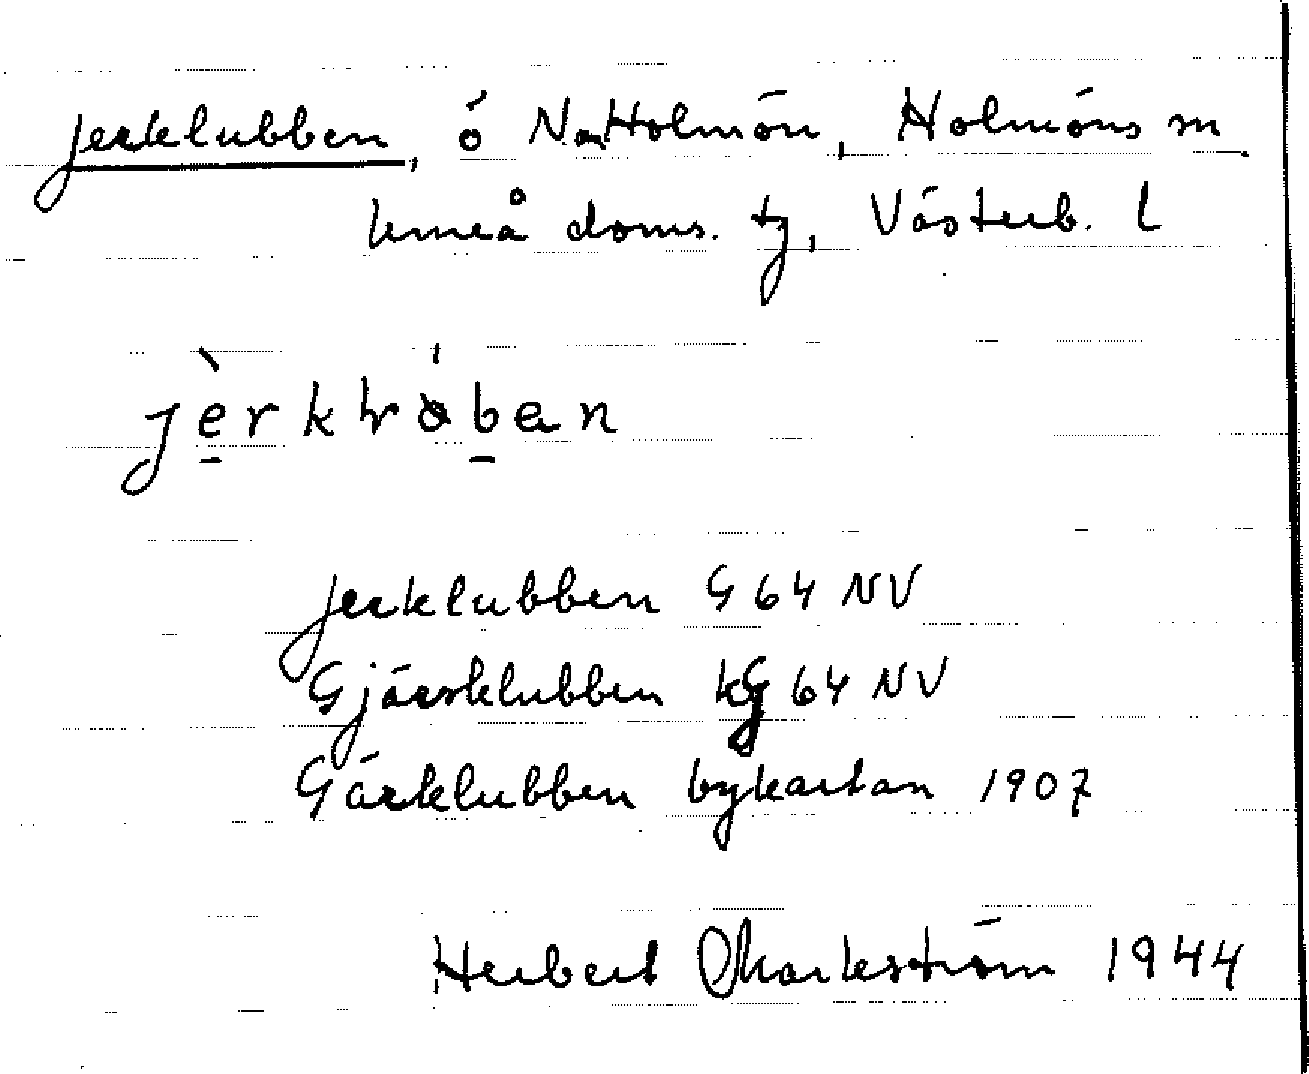 Jerklubben, ö N om Holmön, Holmöns sn
Umeå doms. tg, Västerb. l
jèrkl̥óban
Jerklubben G 64 NV
Gjärsklubben kg 64 NV
Gärklubben bykartan 1907
Herbert Markström 1944